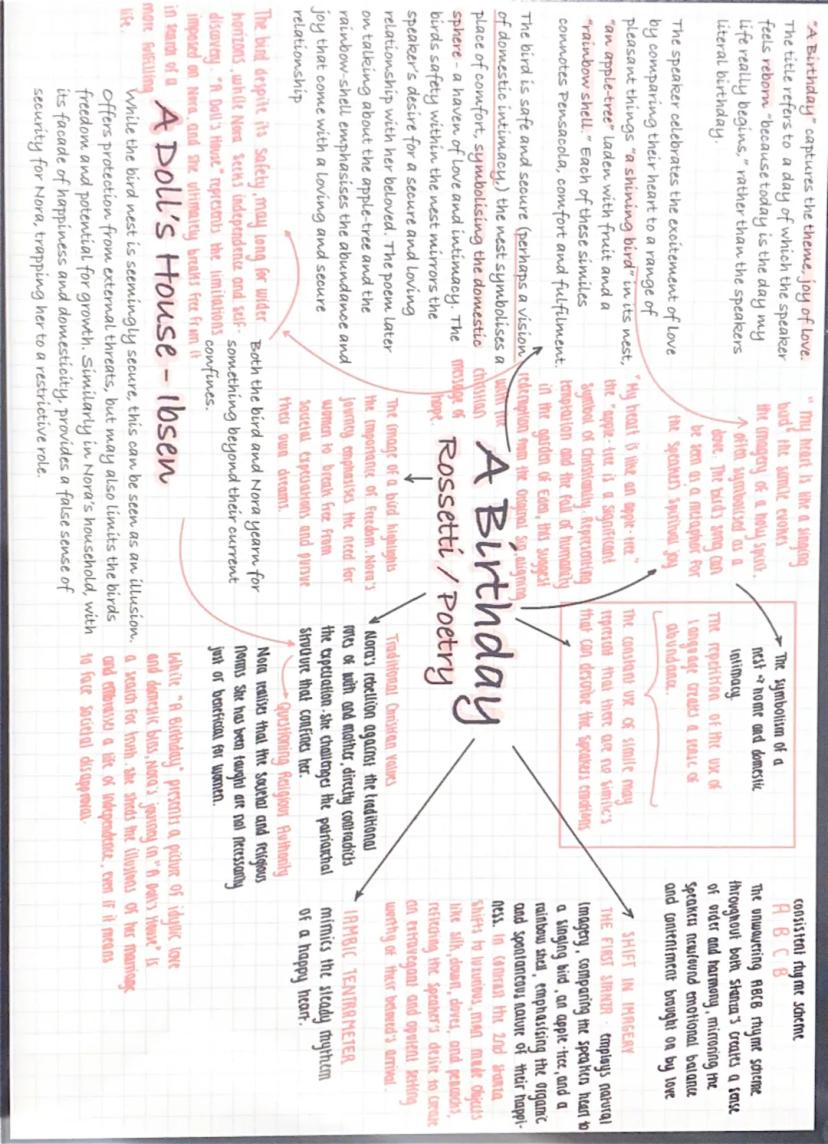 "A Birthday" captures the theme, joy of love.
The title refers to a day of which the speaker
feels reborn "because today is the day my
life really begins," rather than the speakers
literal birthday.
The speaker celebrates the excitement of love
by comparing their heart to a range of
pleasant things "a shining bird" in its nest,
"an apple-tree" laden with fruit and a
"rainbow shell." Each of these similes
connotes Pensacola, comfort and fulfilment.
The bird is safe and secure (perhaps a vision
of domestic intimacy,) the nest symbolises a
place of comfort, symbolising the domestic
sphere - a haven of love and intimacy. The
birds safety within the nest mirrors the
speaker's desire for a secure and loving
relationship with her beloved. The poem later
on talking about the apple-tree and the
rainbow-shell emphasises the abundance and
joy that come with a loving and secure
relationship
The bird despite its safety, may long for wider
horizons, while Nora seeks independence and self-
discovery. "A Doll's House" represents the limitations
imposed on Nora, and she ultimately breaks free from it
in search of a
more fulfilling
life.
A Doll's House - Ibsen
While the bird nest is seemingly secure, this can be seen as an illusion.
Offers protection from external threats, but may also limits the birds
freedom and potential for growth. Similarly in Nora's household, with
its facade of happiness and domesticity, provides a false sense of
security for Nora, trapping her to a restrictive role.
"My heart is like a singing
bird" the simile evokes
the imagery of a holy spirit.
often symbolised as a
dove. The bird's song can
be seen as a metaphor for
the speaker's spiritual joy
"My heart is like an apple-tree"
the "apple-tree is a significant
symbol of Christianity. Representing
temptation and the fall of humanity
in the garden of Eden, this suggest
redemption from the Original Sin aligning
with the
christian
message of
hope.
A Birthday
Rossetti / Poetry
The image of a bird highlights
the importance of freedom. Nora's
journey emphasises the need for
women to break free from
societal expectations and pursue
their own dreams.
Both the bird and Nora yearn for
something beyond their current
confines.
The symbolism of a
nest → home and domestic
intimacy.
The repetition of the use of
language creates a sense of
abundance.
The constant use of simile may
represent that there are no simile's
that can describe the speakers emotions
Traditional Christian values
Nora's rebellion against the traditional
roles of wife and mother, directly contradicts
the expectation - she challenges the patriarchal
structure that confines her.
Questioning Religious Authority
Nora realises that the societal and religious
norms she has been taught are not necessarily
just or beneficial for women.
While "A Birthday" presents a picture of idyllic love
and domestic bliss, Nora's journey in "A Doll's House" is
a search for truth. she sheds the illusions of her marriage
and embraces a life of independence, even if it means
to face societal disapproval.
consistent rhyme scheme
A B C B
The unwavering ABCB rhyme scheme
throughout both stanza's creates a sense
of order and harmony, mirroring the
speakers newfound emotional balance
and contentment brought on by love
SHIFT IN IMAGERY
THE FIRST STANZA - employs natural
imagery, comparing the speakers heart to
a singing bird, an apple-tree, and a
rainbow shell, emphasising the organic
and spontaneous nature of their happi-
ness. In contrast the 2nd stanza
shifts to luxurious, man made objects
like silk, down, doves, and peacocks,
reflecting the speaker's desire to create
an extravagant and opulent setting
worthy of their beloved's arrival.
IAMBIC TENTRAMETER
mimics the steady rhythem
of a happy heart.